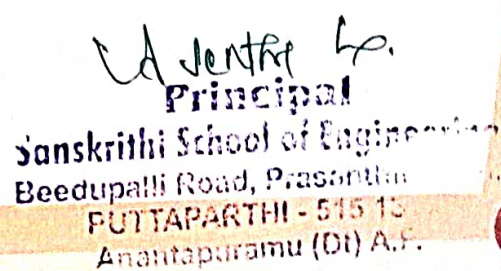 Principal
Sanskrithi School of Engineering
Beedupalli Road, Prasanthi
PUTTAPARTHI - 515 13
Anantapuramu (Dt) A.P.